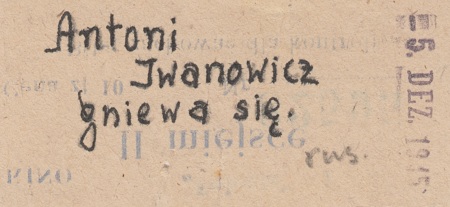 Antoni
Iwanowicz
gniewa się.
rus.
- 5. DEZ. 1945
II miejsce
KINO